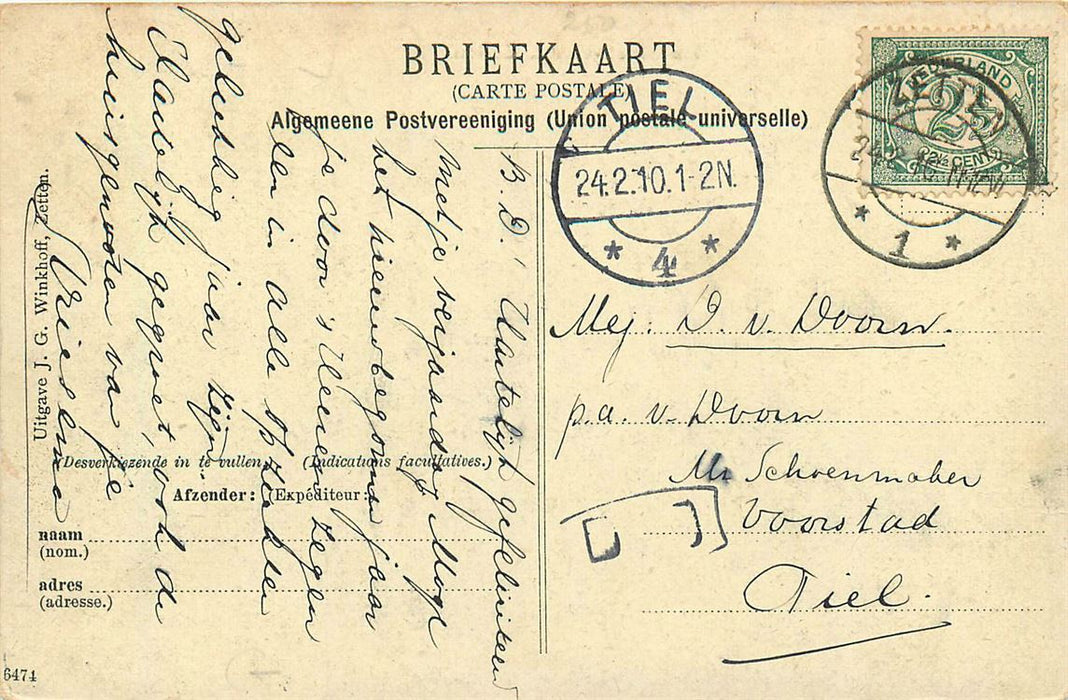 BRIEFKAART
(CARTE POSTALE)
Algemeene Postvereeniging (Union postale universelle)
NEDERLAND
2½
2½ CENT
TIEL
24.2.10.1-2N.
4
1
Mej. D. v. Doorn.
p.a. v. Doorn
Mr Schoenmaker
Voorstad
Tiel.
B. D.! Hartelijk gefeliciteerd
met je verjaardag. Moge
het nieuwbegonnen jaar
je door 's Heeren zegen
een in alle opzichten
gelukkig jaar zijn.
Hartelijk gegroet, ook de
huisgenooten van je
Vriendin
(Desverkiezende in te vullen.) (Indications facultatives.)
Afzender: (Expéditeur:)
naam
(nom.)
adres
(adresse.)
Uitgave J. G. Winkhoff, Zetten.
6474